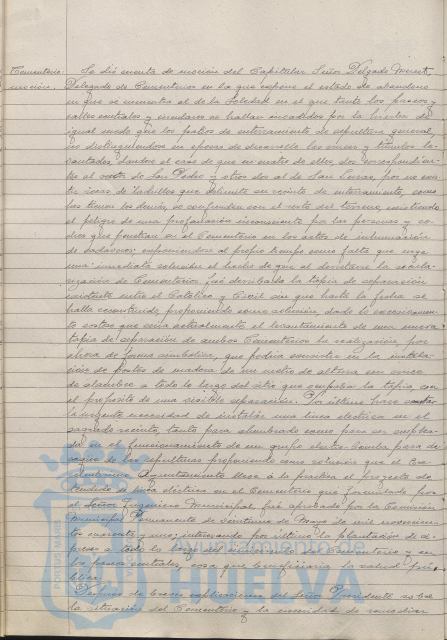 Cementerio: Se dió cuenta de moción del Capitular Señor Delgado
moción. Delegado de Cementerios en la que expone el estado de abandono
en que se encuentra el de la Soledad en el que tanto los paseos y
calles centrales y circulares se hallan invadidos por la hierba de
igual modo que los patios de enterramiento de sepultura general,
no distinguiéndose en épocas de desarrollo las cruces y túmulos le-
vantados, dándose el caso de que en cuatro de ellos, dos correspondien-
tes al de San Pedro y otros dos al de San Lucas, por no exis-
tir de ladrillos que delimite su recinto de enterramiento, como
los tienen los demás, se confunden con el resto del terreno, existiendo
el peligro de una profanación inconsciente por las personas y
que penetran en el Cementerio en los actos de inhumación
de cadáveres; exponiéndose al propio tiempo como falta que exige
una inmediata solución el hecho de que al decretarse la secula-
rización de Cementerios, fué derribada la tapia de separación
existente entre el Católico y Civil sin que hasta la fecha se
halle reconstruida, proponiendo como solución, dado lo excesivamen-
te costoso que sería actualmente el levantamiento de una nueva
tapia de separación de ambos Cementerios la realización, por
ahora de forma simbólica, que podría consistir en la instala-
ción de postes de madera de un metro de altura con cerco
de alambre a todo lo largo del sitio que ocupaba la tapia, con
el propósito de una visible separación. Por último hace constar
la urgente necesidad de instalar una línea eléctrica en el
sagrado recinto, tanto para alumbrado como para ser emplea-
da en el funcionamiento de un grupo electro-bomba para de-
sagüe de las sepulturas proponiendo como solución que el Exce-
lentísimo Ayuntamiento lleve a la práctica el proyecto de
tendido de línea eléctrica en el Cementerio que formulado por
el Señor Ingeniero Municipal fué aprobado por la Comisión
Municipal Permanente de veintiuno de Mayo de mil novecien-
tos cuarenta y uno; interesando por último la plantación de ci-
preses a todo lo largo del muro del Cementerio y en
los paseos centrales, cosa que beneficiaría la salud pú-
blica.
Después de breves explicaciones del Señor Presidente sobre
la situación del Cementerio y la necesidad de remediar
PORTUS MARIS
Ayuntamiento de
HUELVA